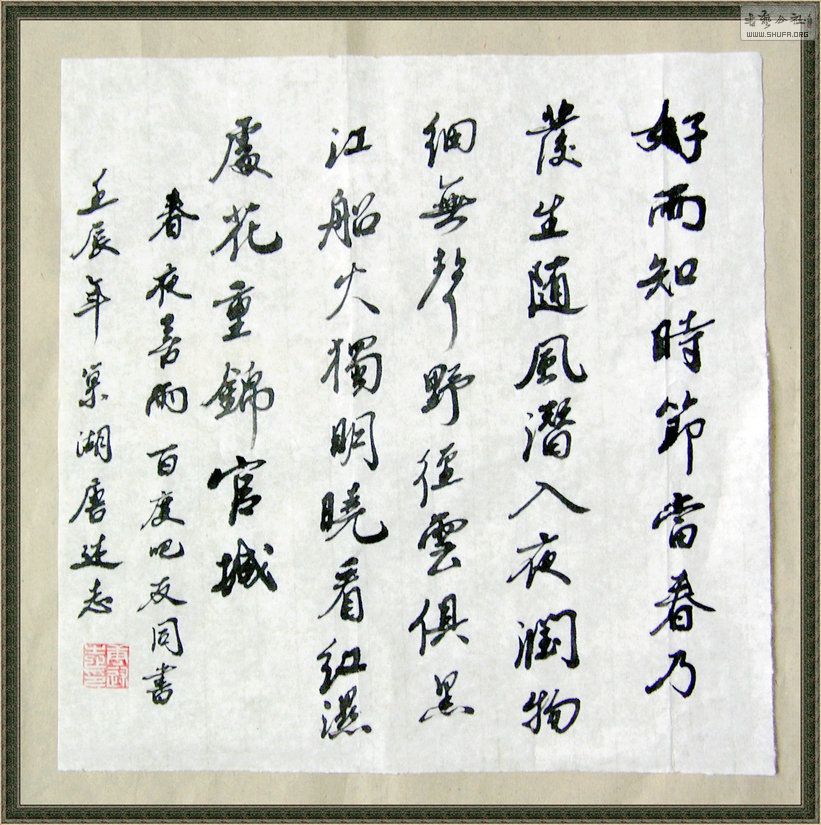 好雨知時節當春乃
發生随風潛入夜潤物
細無聲野徑雲俱黑
江船火獨明曉看紅濕
處花重錦官城
春夜喜雨 百度吧友同書
壬辰年 巢湖唐志
書藝公社
WWW.SHUFA.ORG